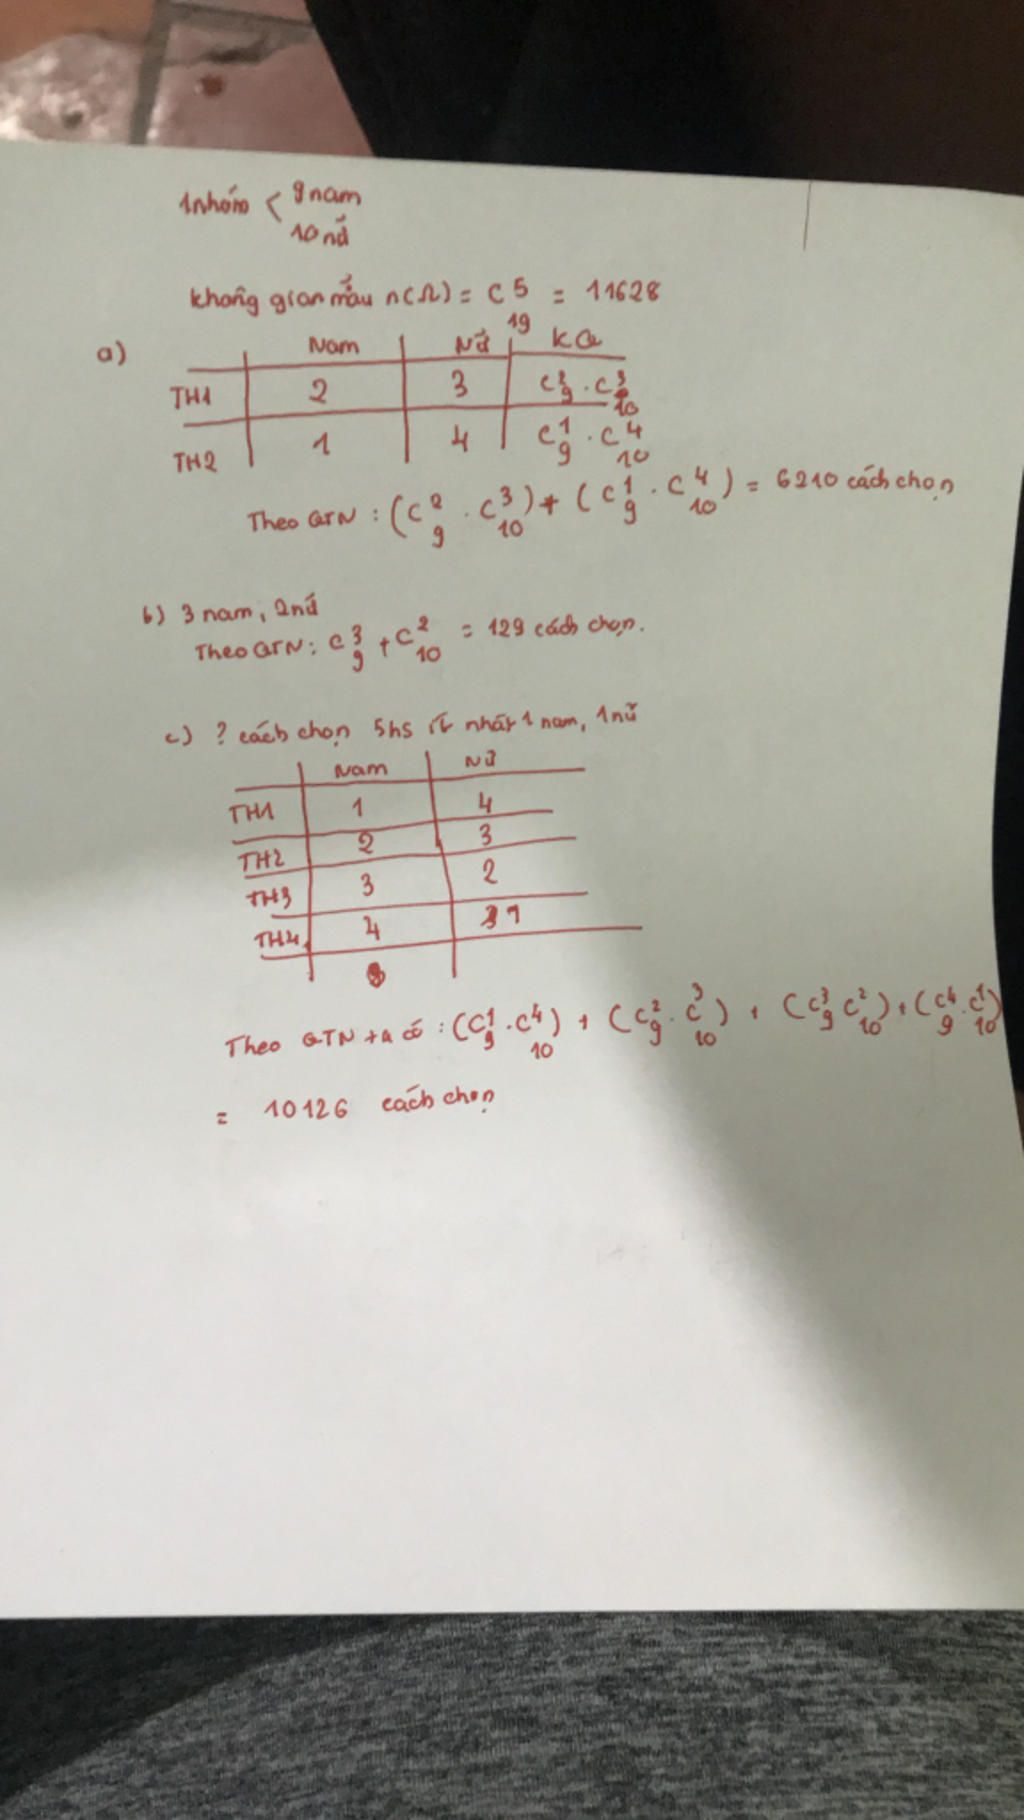 1 nhóm < 9 nam
10 nữ
không gian mẫu n(Ω) = C 5 19 = 11628
a)
Nam Nữ KQ
TH1 2 3 C 2 9 . C 3 10
TH2 1 4 C 1 9 . C 4 10
Theo QTN : (C 2 9 . C 3 10) + (C 1 9 . C 4 10) = 6210 cách chọn
b) 3 nam, 2 nữ
Theo QTN : C 3 9 + C 2 10 = 129 cách chọn.
c) ? cách chọn 5hs ít nhất 1 nam, 1 nữ
Nam Nữ
TH1 1 4
TH2 2 3
TH3 3 2
TH4 4 1
Theo QTN ta có : (C 1 9 . C 4 10) + (C 2 9 . C 3 10) + (C 3 9 C 2 10) + (C 4 9 . C 1 10)
= 10126 cách chọn